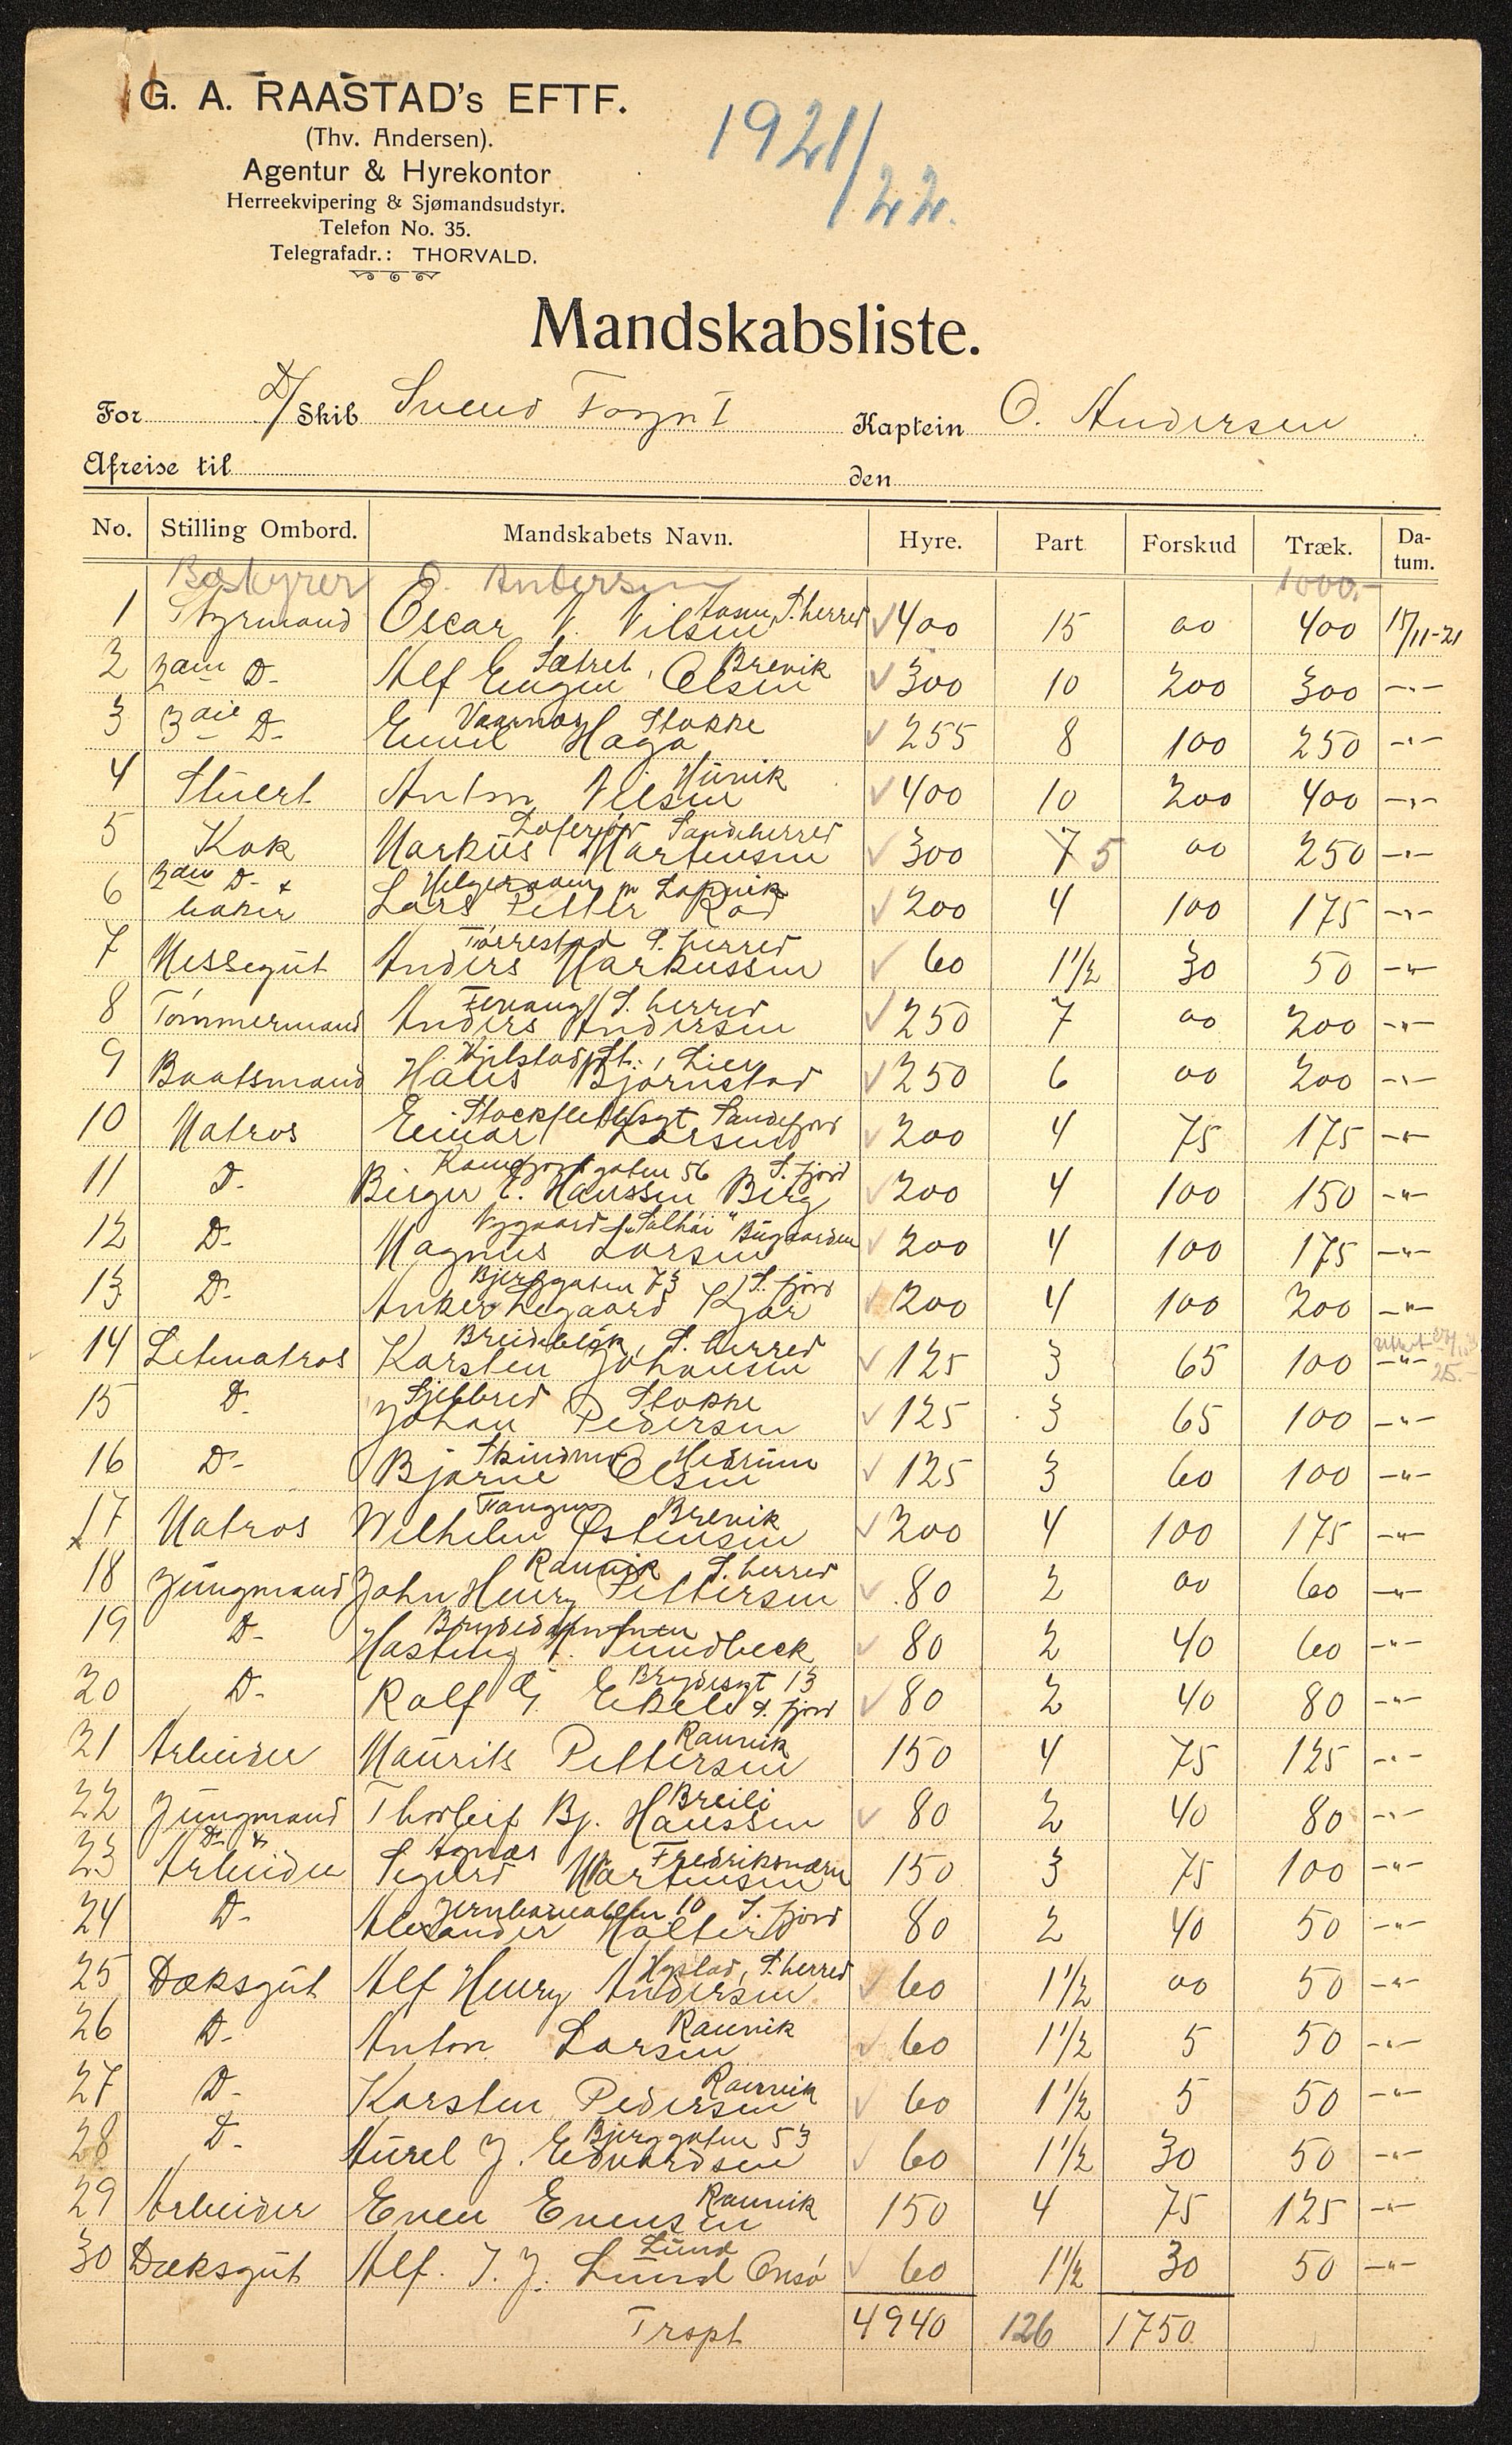 G. A. RAASTAD's EFTF.
(Thv. Andersen).
Agentur & Hyrekontor
Herreekvipering & Sjømandsudstyr.
Telefon No. 35.
Telegrafadr.: THORVALD.
1921/22.
Mandskabsliste.
For D/Skib Svend Foyn I Kaptein O. Andersen
Afreise til den
No. Stilling Ombord. Mandskabets Navn. Hyre. Part Forskud Træk. Datum.
Bestyrer O. Andersen 1000.-
S.herred
1 Styrmand Oscar N. Nilsen 400 15 00 400 15/11-21
Sætret, Brevik
2 2den D- Alf Eugen Olsen 300 10 200 300 -"-
Stokke
3 3die D- Emil Haga 255 8 100 250 -"-
4 Stuert Anton Nilsen 400 10 200 400 -"-
Sandeherred
5 Kok Markus Martensen 300 7 5 00 250 -"-
Helgeroaen pr Larvik
6 2den D- & baker Lars Petter Rød 200 4 100 175 -"-
Torrestad S. herred
7 Messegut Anders Markussen 60 1½ 30 50 -"-
Fevang S. herred
8 Tømmermand Anders Andersen 250 7 00 200 -"-
Hjelstadst., Lier
9 Baatsmand Hans Bjørnstad 250 6 00 200 -"-
Stockflethsgt Sandefjord
10 Matros Einar Larsen 200 4 75 175 -"-
Kamfjordgaten 56 S. fjord
11 D- Birger E. Hanssen Berg 200 4 100 150 -"-
Nygaard "Solhøi" Bugaarden
12 D- Magnus Larsen 200 4 100 175 -"-
Bjerggaten 73 S. fjord
13 D- Anker Legaard Kjær 200 4 100 200 -"-
Breidablik, S. herred
14 Letmatros Karsten Johansen 125 3 65 100 -"- 25.-
Gjelbred Stokke
15 D- Johan Pedersen 125 3 65 100 -"-
Hedrum
16 D- Bjarne Olsen 125 3 60 100 -"-
Tangen Brevik
17 Matros Wilhelm Østensen 200 4 100 175 -"-
Raunik S. herred
18 Jungmand John Henry Pettersen 80 2 00 60 -"-
Brydedammen
19 D- Hasting M. Sundbeck 80 2 40 60 -"-
Brydesgt 13
20 D- Rolf G. Ekeli S. fjord 80 2 40 80 -"-
Raunik
21 Arbeider Maurits Pettersen 150 4 75 125 -"-
Breili
22 Jungmand Thorleif Bj. Hanssen 80 2 40 80 -"-
Agnæs Fredriksværn
23 D- & Arbeider Sigurd Martinsen 150 3 75 100 -"-
Jernbanealleen 10 S. fjord
24 D- Alexander Halters 80 2 40 50 -"-
Hystad, S. herred
25 Dæksgut Alf Henry Andersen 60 1½ 00 50 -"-
Raunik
26 D- Anton Larsen 60 1½ 5 50 -"-
Raunik
27 D- Karsten Pedersen 60 1½ 5 50 -"-
Bjerggaten 53
28 D- Aurel J. Edvardsen 60 1½ 30 50 -"-
Raunik
29 Arbeider Even Evensen 150 4 75 125 -"-
Lund
30 Dæksgut Alf. J. J. Lund Onsø 60 1½ 30 50 -"-
Trspt 4940 126 1750